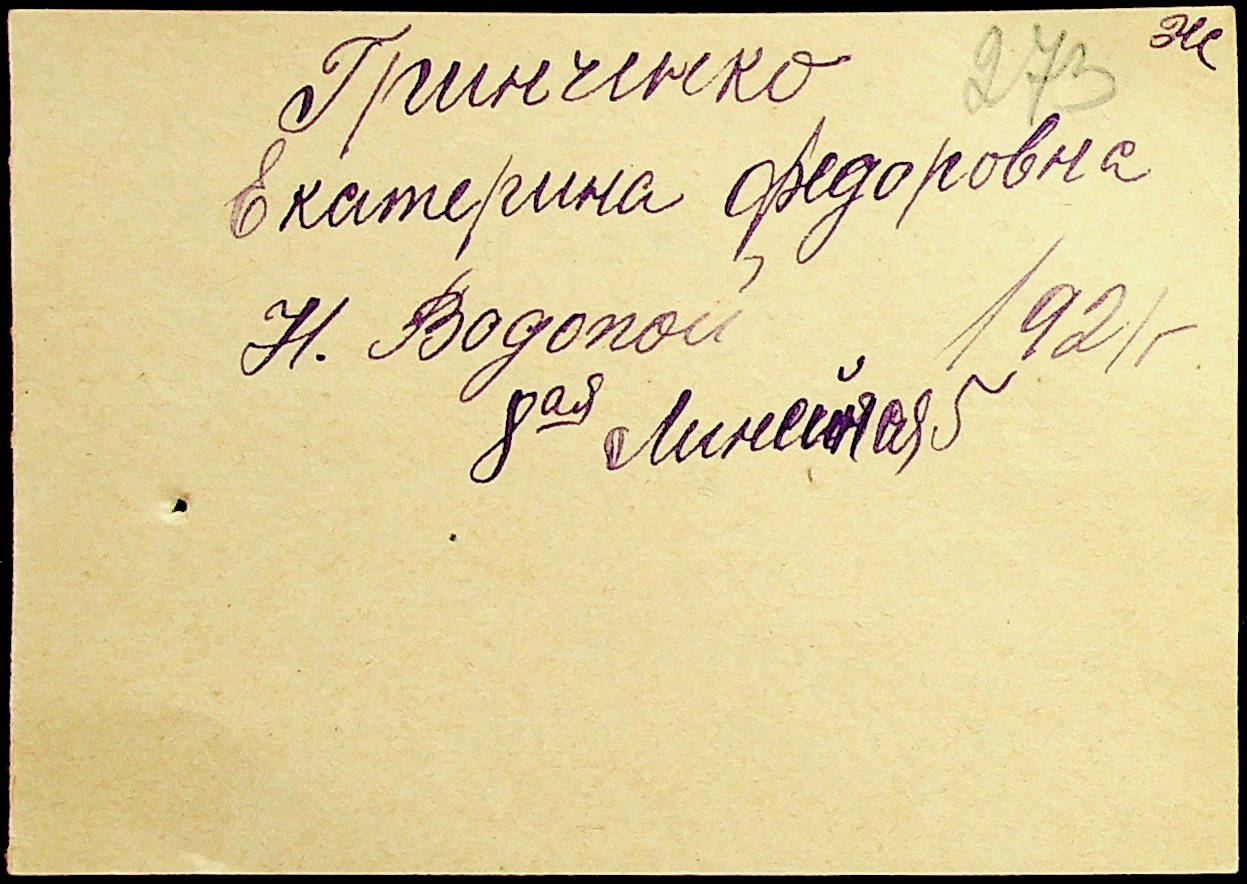 Гринченко 273 ж
Екатерина Федоровна
Н. Водопой 1921г
8ая Линейная 5